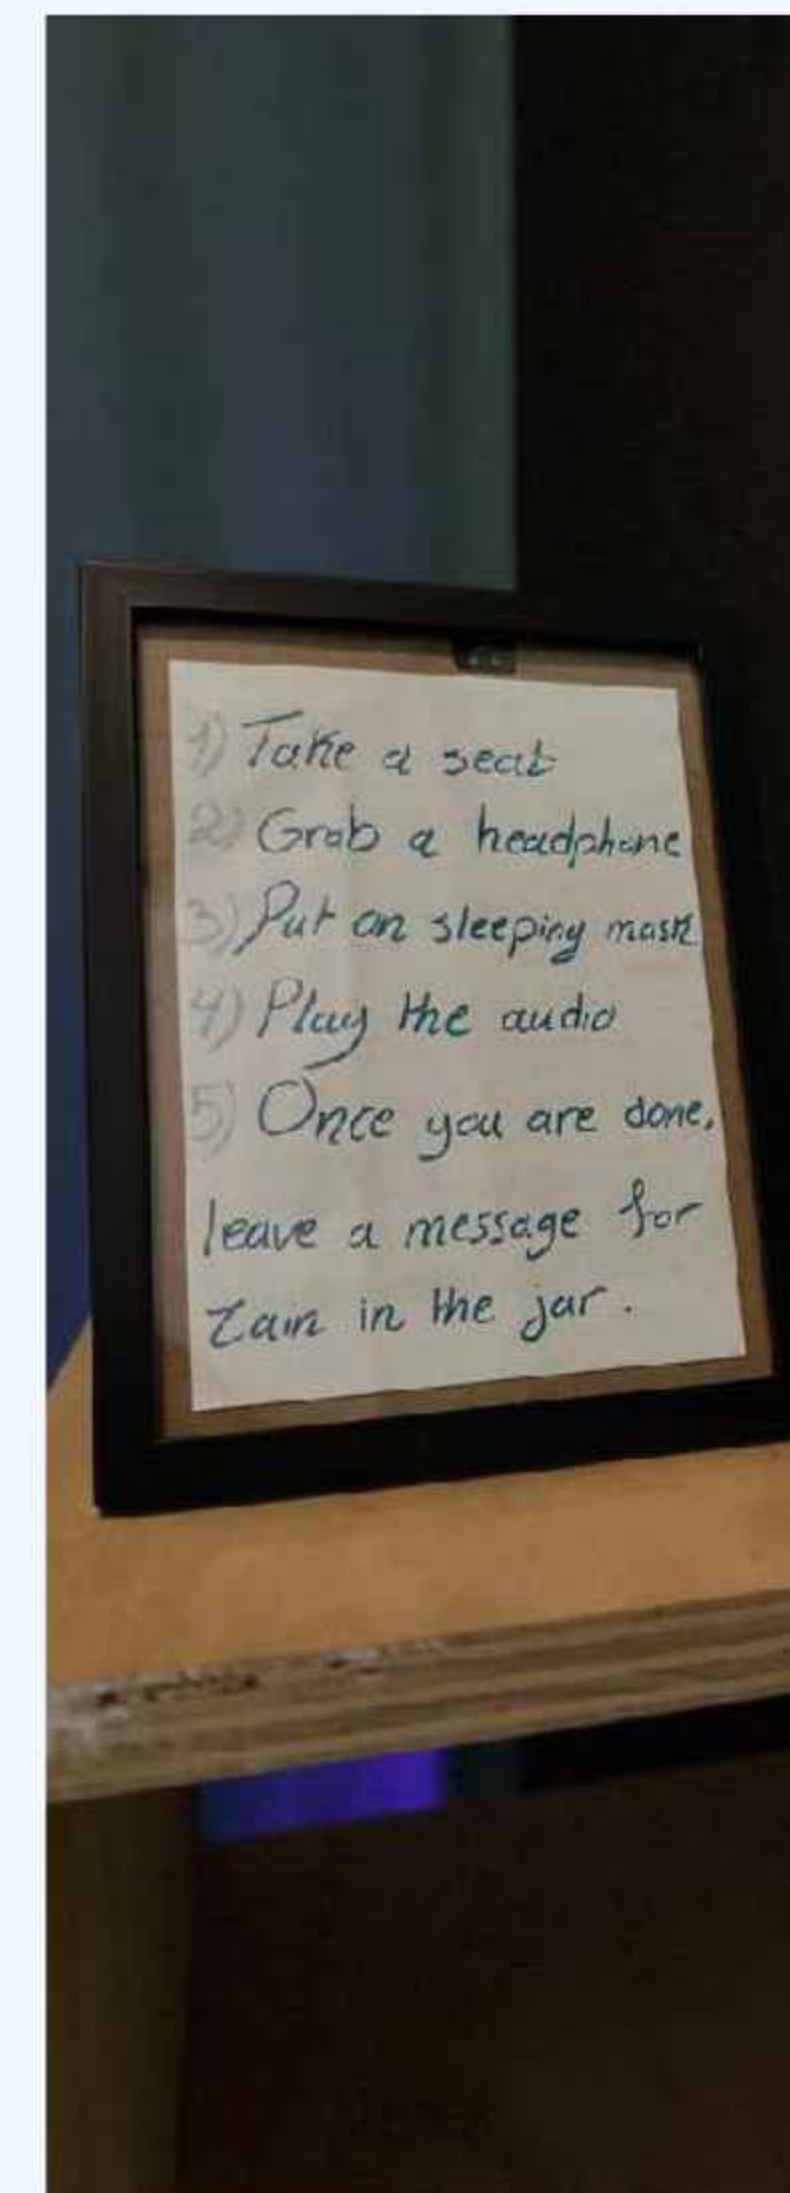 1) Take a seat
2) Grab a headphone
3) Put on sleeping mask
4) Play the audio
5) Once you are done,
leave a message for
Zain in the jar.